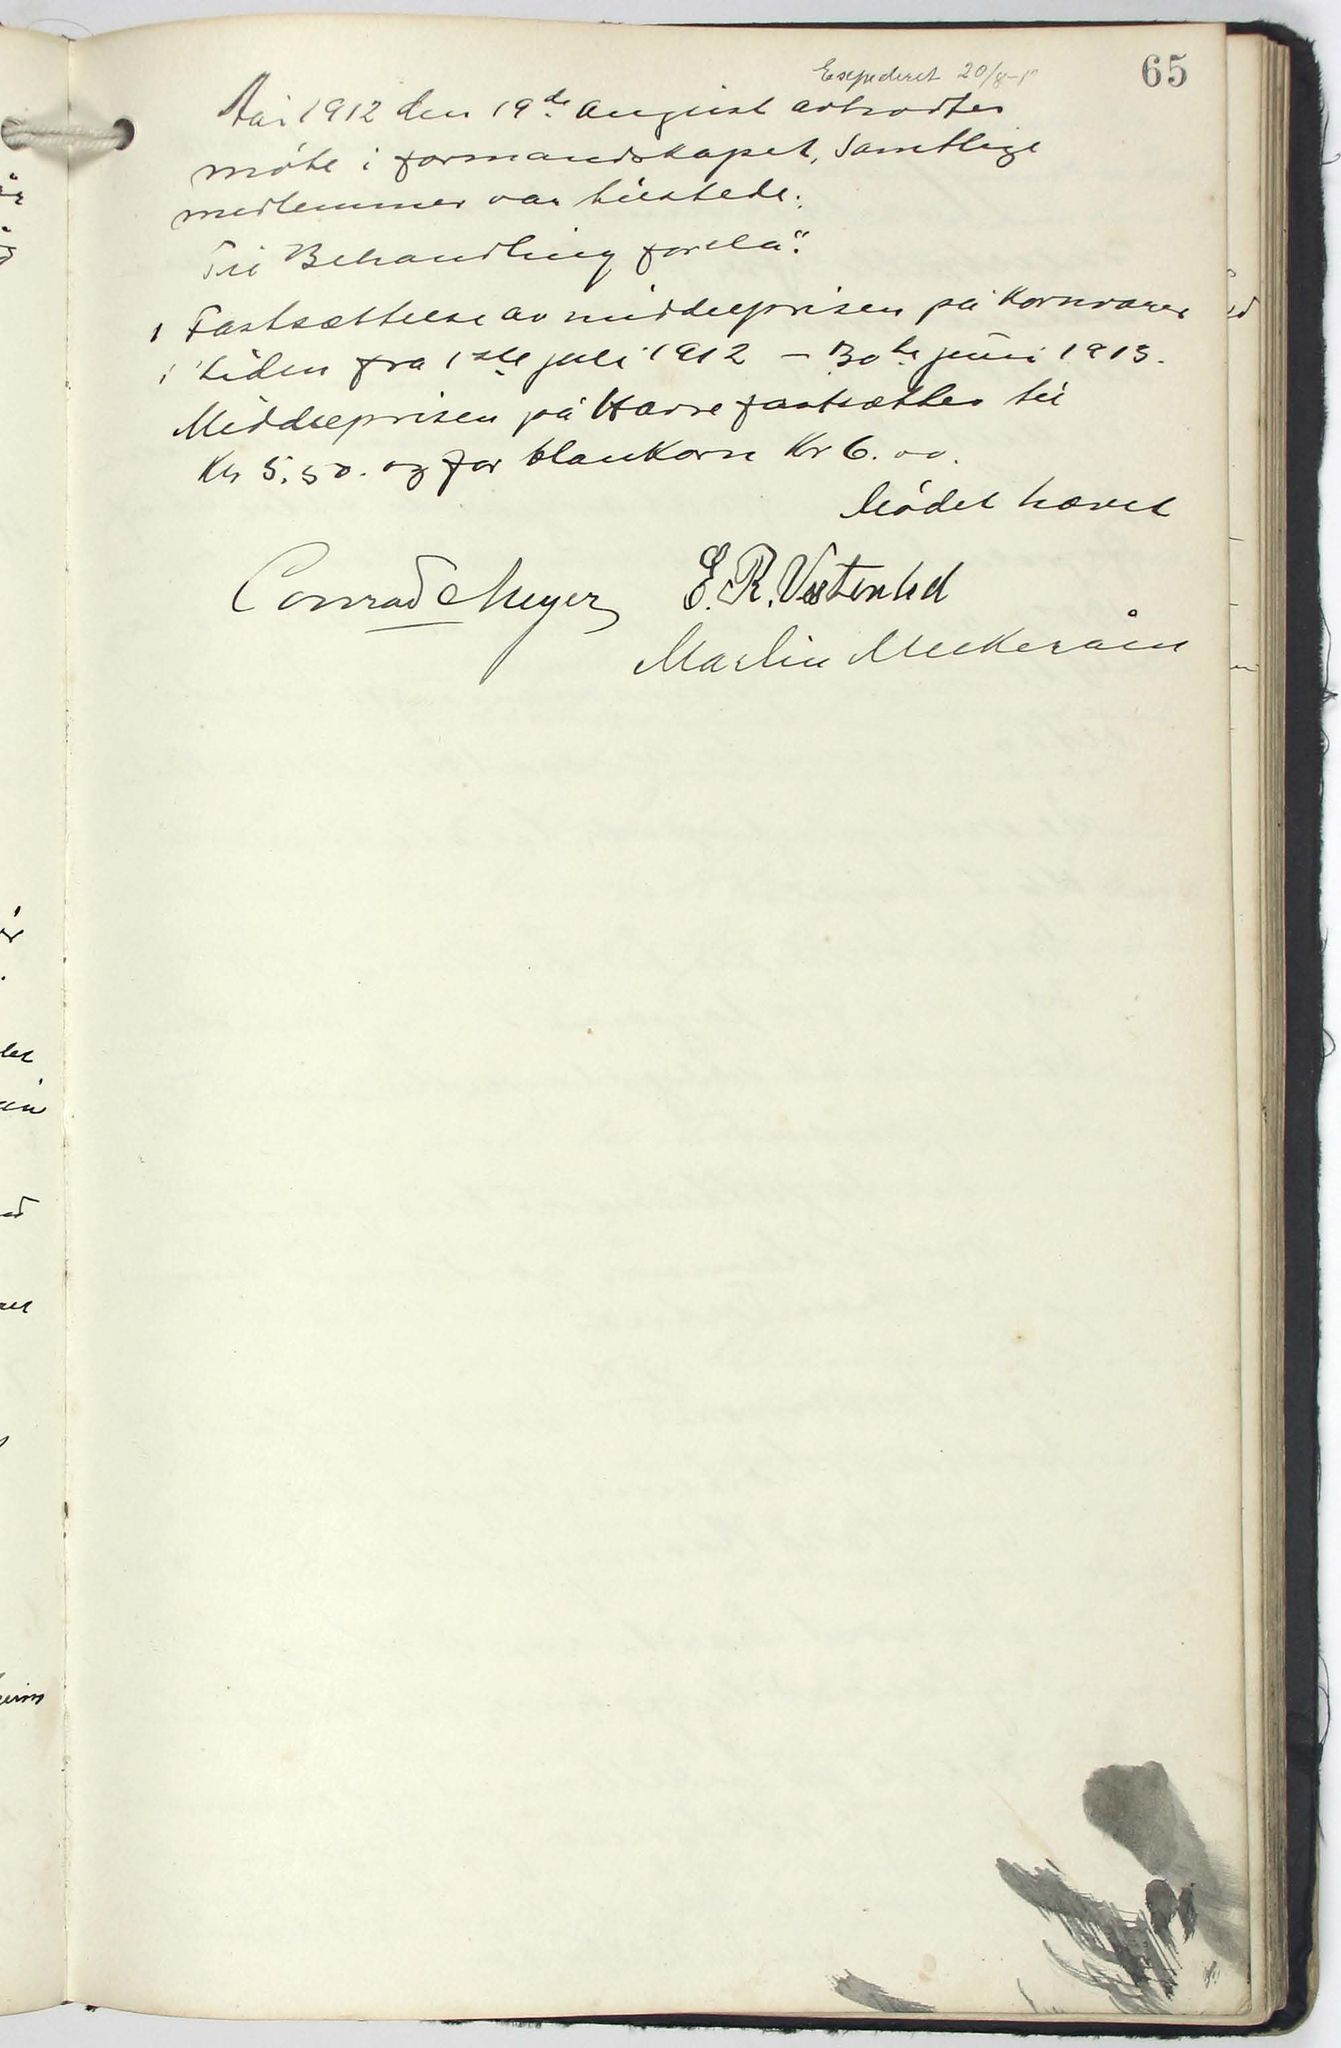 65
Expederet 20/8-1
Aar 1912 den 19de August avholdtes
møte i formandskapet, Samtlige
medlemmer var tilstede.
Til Behandling forelå:
1 Fastsættelse av middelprisen på Kornvarer
i tiden fra 1ste juli 1912 - 30te juni 1913.
Middelprisen på Havre fastsættes til
Kr 5.50. og for blankorn Kr 6.00.
Mødet hævet
Conrad Meyer E. R. Vestenlid
Martin